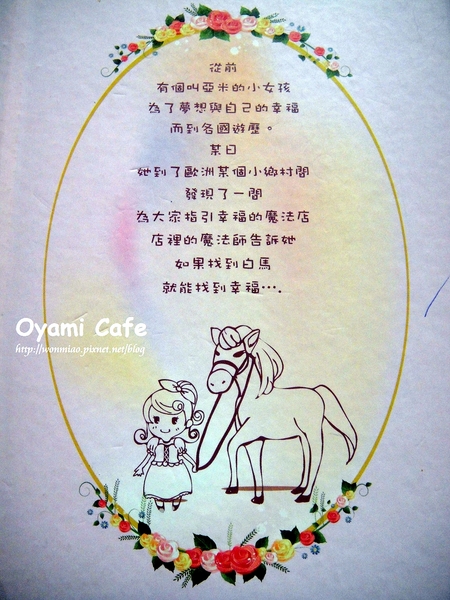 從前
有個叫亞米的小女孩
為了夢想與自己的幸福
而到各國遊歷。
某日
她到了歐洲某個小鄉村間
發現了一間
為大家指引幸福的魔法店
店裡的魔法師告訴她
如果找到白馬
就能找到幸福….
Oyami Cafe
http://wonmiao.pixnet.net/blog